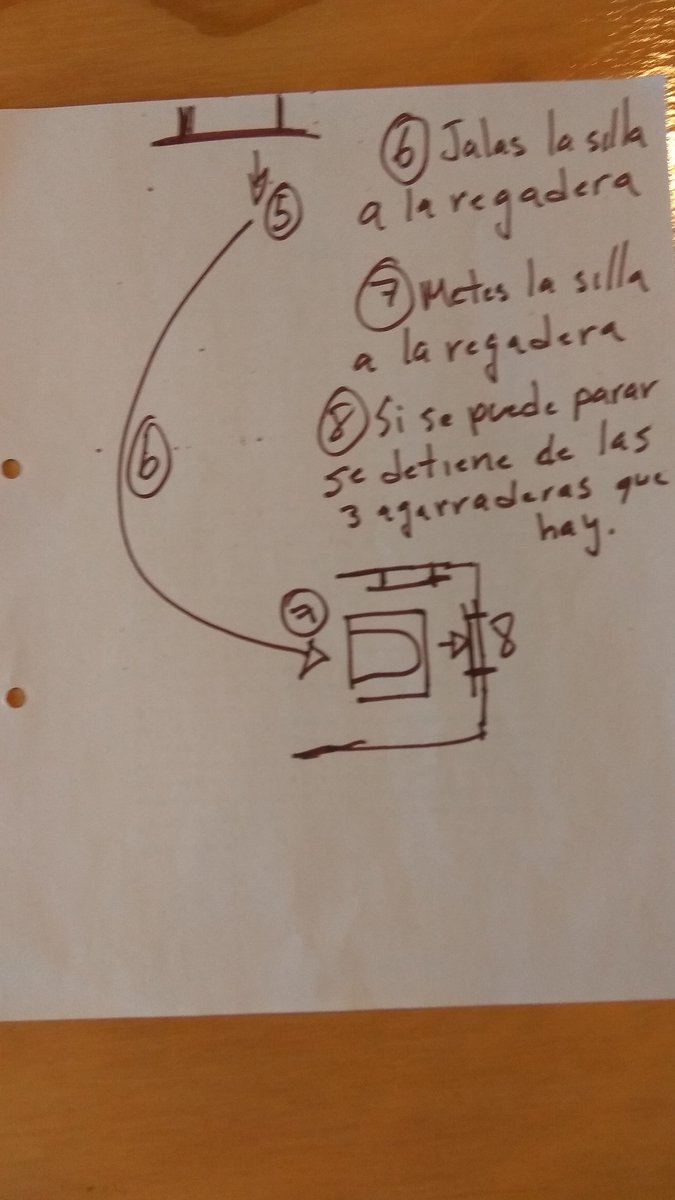 ⑥ Jalas la silla
a la regadera
⑤
⑦ Metes la silla
a la regadera
⑧ Si se puede parar
se detiene de las
3 agarraderas que
hay.
⑥
⑦
8